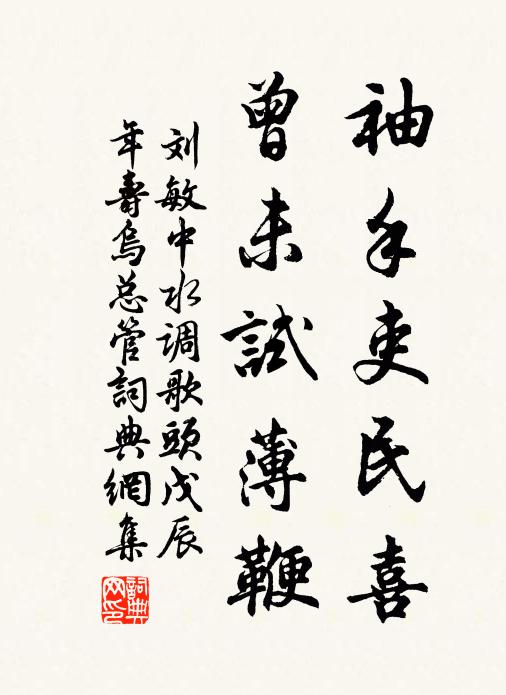 袖手吏民喜
曾未試薄鞭
刘敏中水调歌頭戊辰
年壽烏总管詞典網集
詞典网印